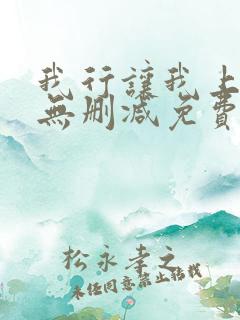 我行讓我上
無刪減免費
松永孝之
未经同意禁止转载